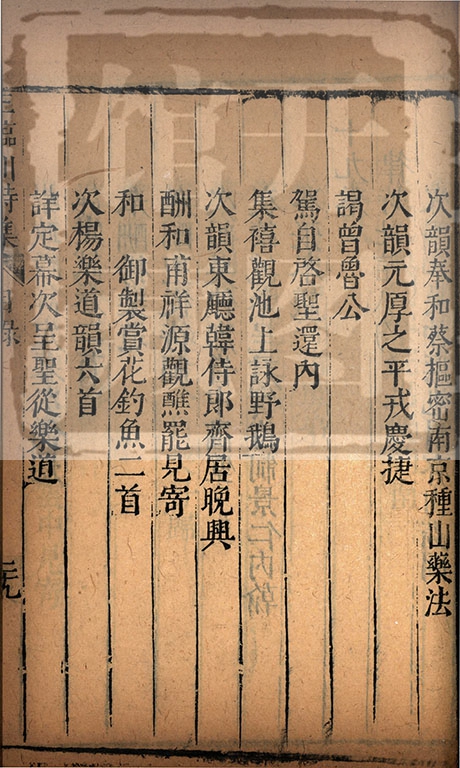 次韻奉和蔡樞密南京種山藥法
次韻元厚之平戎慶捷
謁曾魯公
駕自啓聖還內
集禧觀池上詠野鵝
次韻東廳韓侍郎齋居晚興
酬和甫祥源觀醮罷見寄
和 御製賞花釣魚二首
次楊樂道韻六首
詳定幕次呈聖從樂道
臨川詩集 目錄